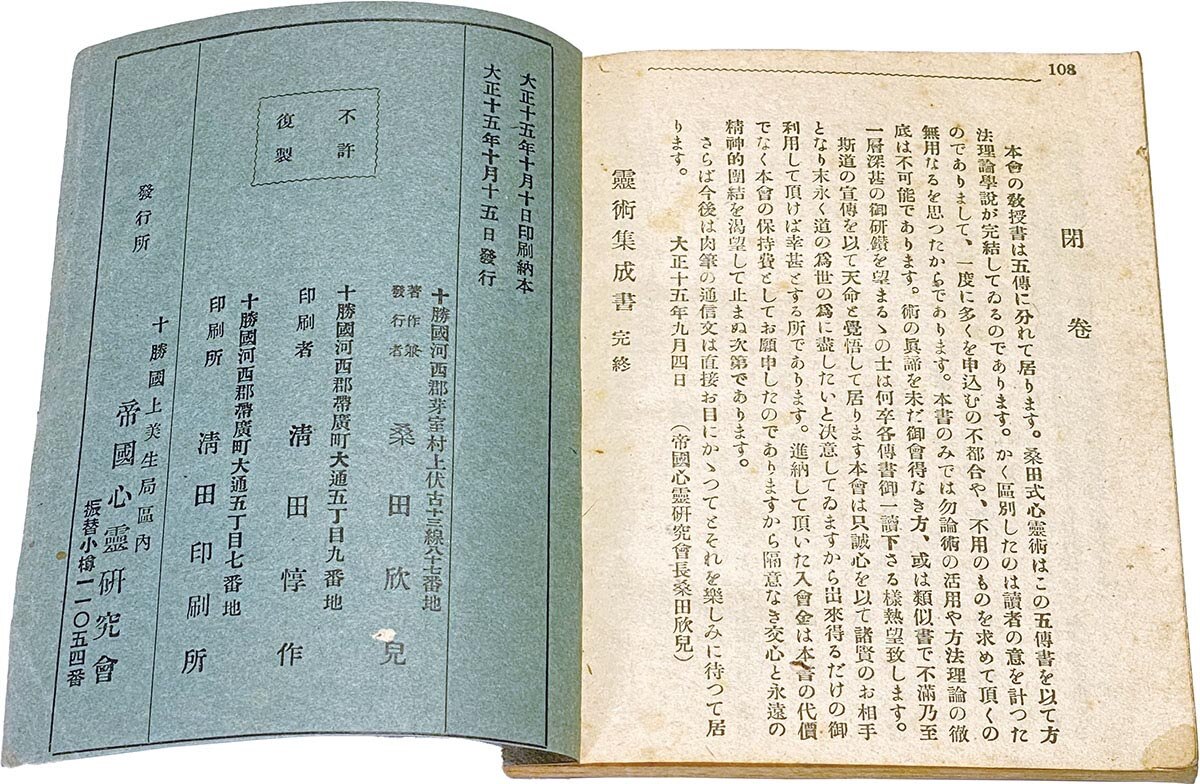 108
閉卷
本會の敎授書は五傳に分れて居ります。桑田式心靈術はこの五傳書を以て方
法理論學說が完結してゐるのであります。かく區別したのは讀者の意を計つた
のでありまして、一度に多くを申込むの不都合や、不用のものを求めて頂くの
無用なるを思つたからであります。本書のみでは勿論術の活用や方法理論の徹
底は不可能であります。術の眞諦を未だ御會得なき方、或は類似書で不滿乃至
一層深甚の御研鑽を望まるゝの士は何卒各傳書御一讀下さる樣熱望致します。
斯道の宣傳を以て天命と覺悟して居ります本會は只誠心を以て諸賢のお相手
となり末永く道の爲世の爲に盡したいと决意してゐますから出來得るだけの御
利用して頂けば幸甚とする所であります。進納して頂いた入會金は本書の代價
でなく本會の保持費としてお願申したのでありますから隔意なき交心と永遠の
精神的團結を渴望して止まぬ次第であります。
さらば今後は肉筆の通信文は直接お目にかゝつてとそれを樂しみに待つて居
ります。
大正十五年九月四日
(帝國心靈硏究會長桑田欣兒)
靈術集成書 完終
大正十五年十月十日印刷納本
大正十五年十月十五日發行
不許
復製
十勝國河西郡芽室村上伏古十三線八十七番地
著作兼
發行者
桑田欣兒
十勝國河西郡帶廣町大通五丁目九番地
印刷者 淸田惇作
十勝國河西郡帶廣町大通五丁目七番地
印刷所 淸田印刷所
十勝國上美生局區內
發行所 帝國心靈硏究會
振替小樽一一〇五四番